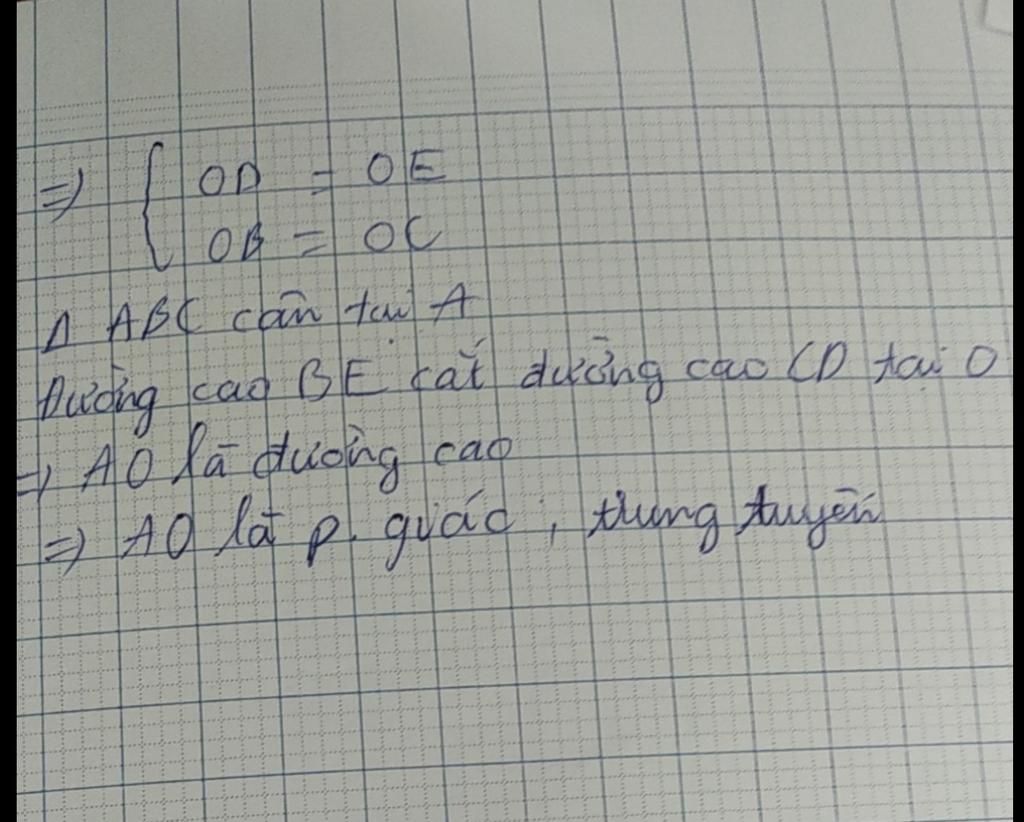 => { OD = OE
OB = OC
Δ ABC cân tại A
Đường cao BE cắt đường cao CD tại O
=> AO là đường cao
=> AO là p. giác, trung tuyến